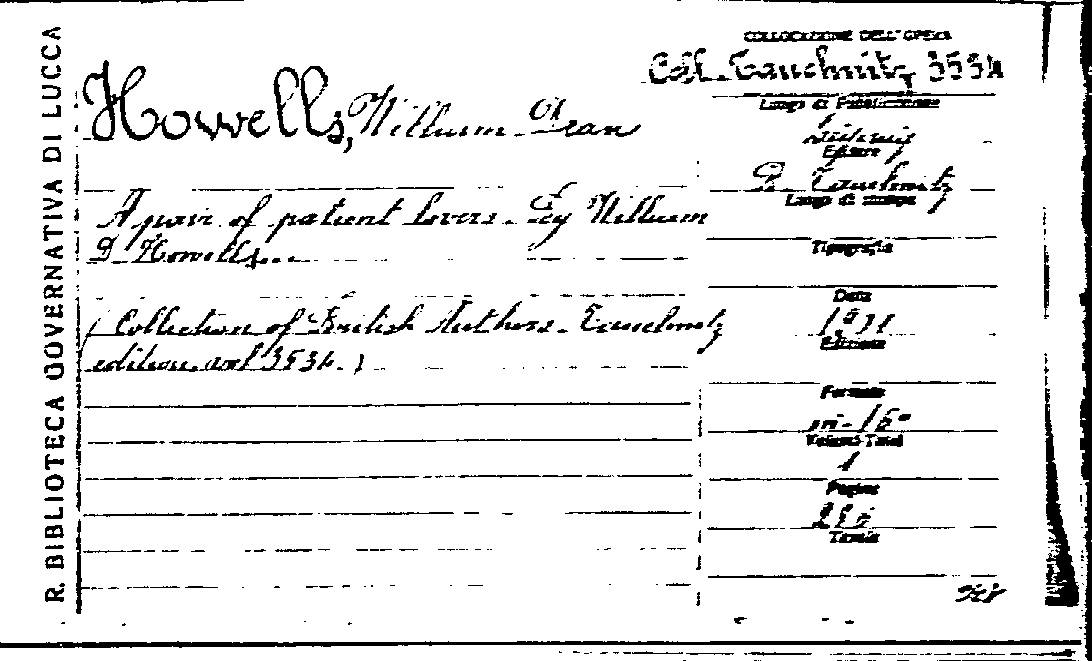 R. BIBLIOTECA GOVERNATIVA DI LUCCA
Howells, William Dean
A pair of patient lovers. By William
D. Howells...
(Collection of British Authors. Tauchnitz
edition. vol 3534.)
COLLOCAZIONE DELL'OPERA
Coll. Tauchnitz 3534
Luogo di Pubblicazione
Editore
B. Tauchnitz
Luogo di stampa
Tipografia
Data
1901
Edizione
Formato
in-16°
Volumi-Tomi
1
Pagine
Tavole